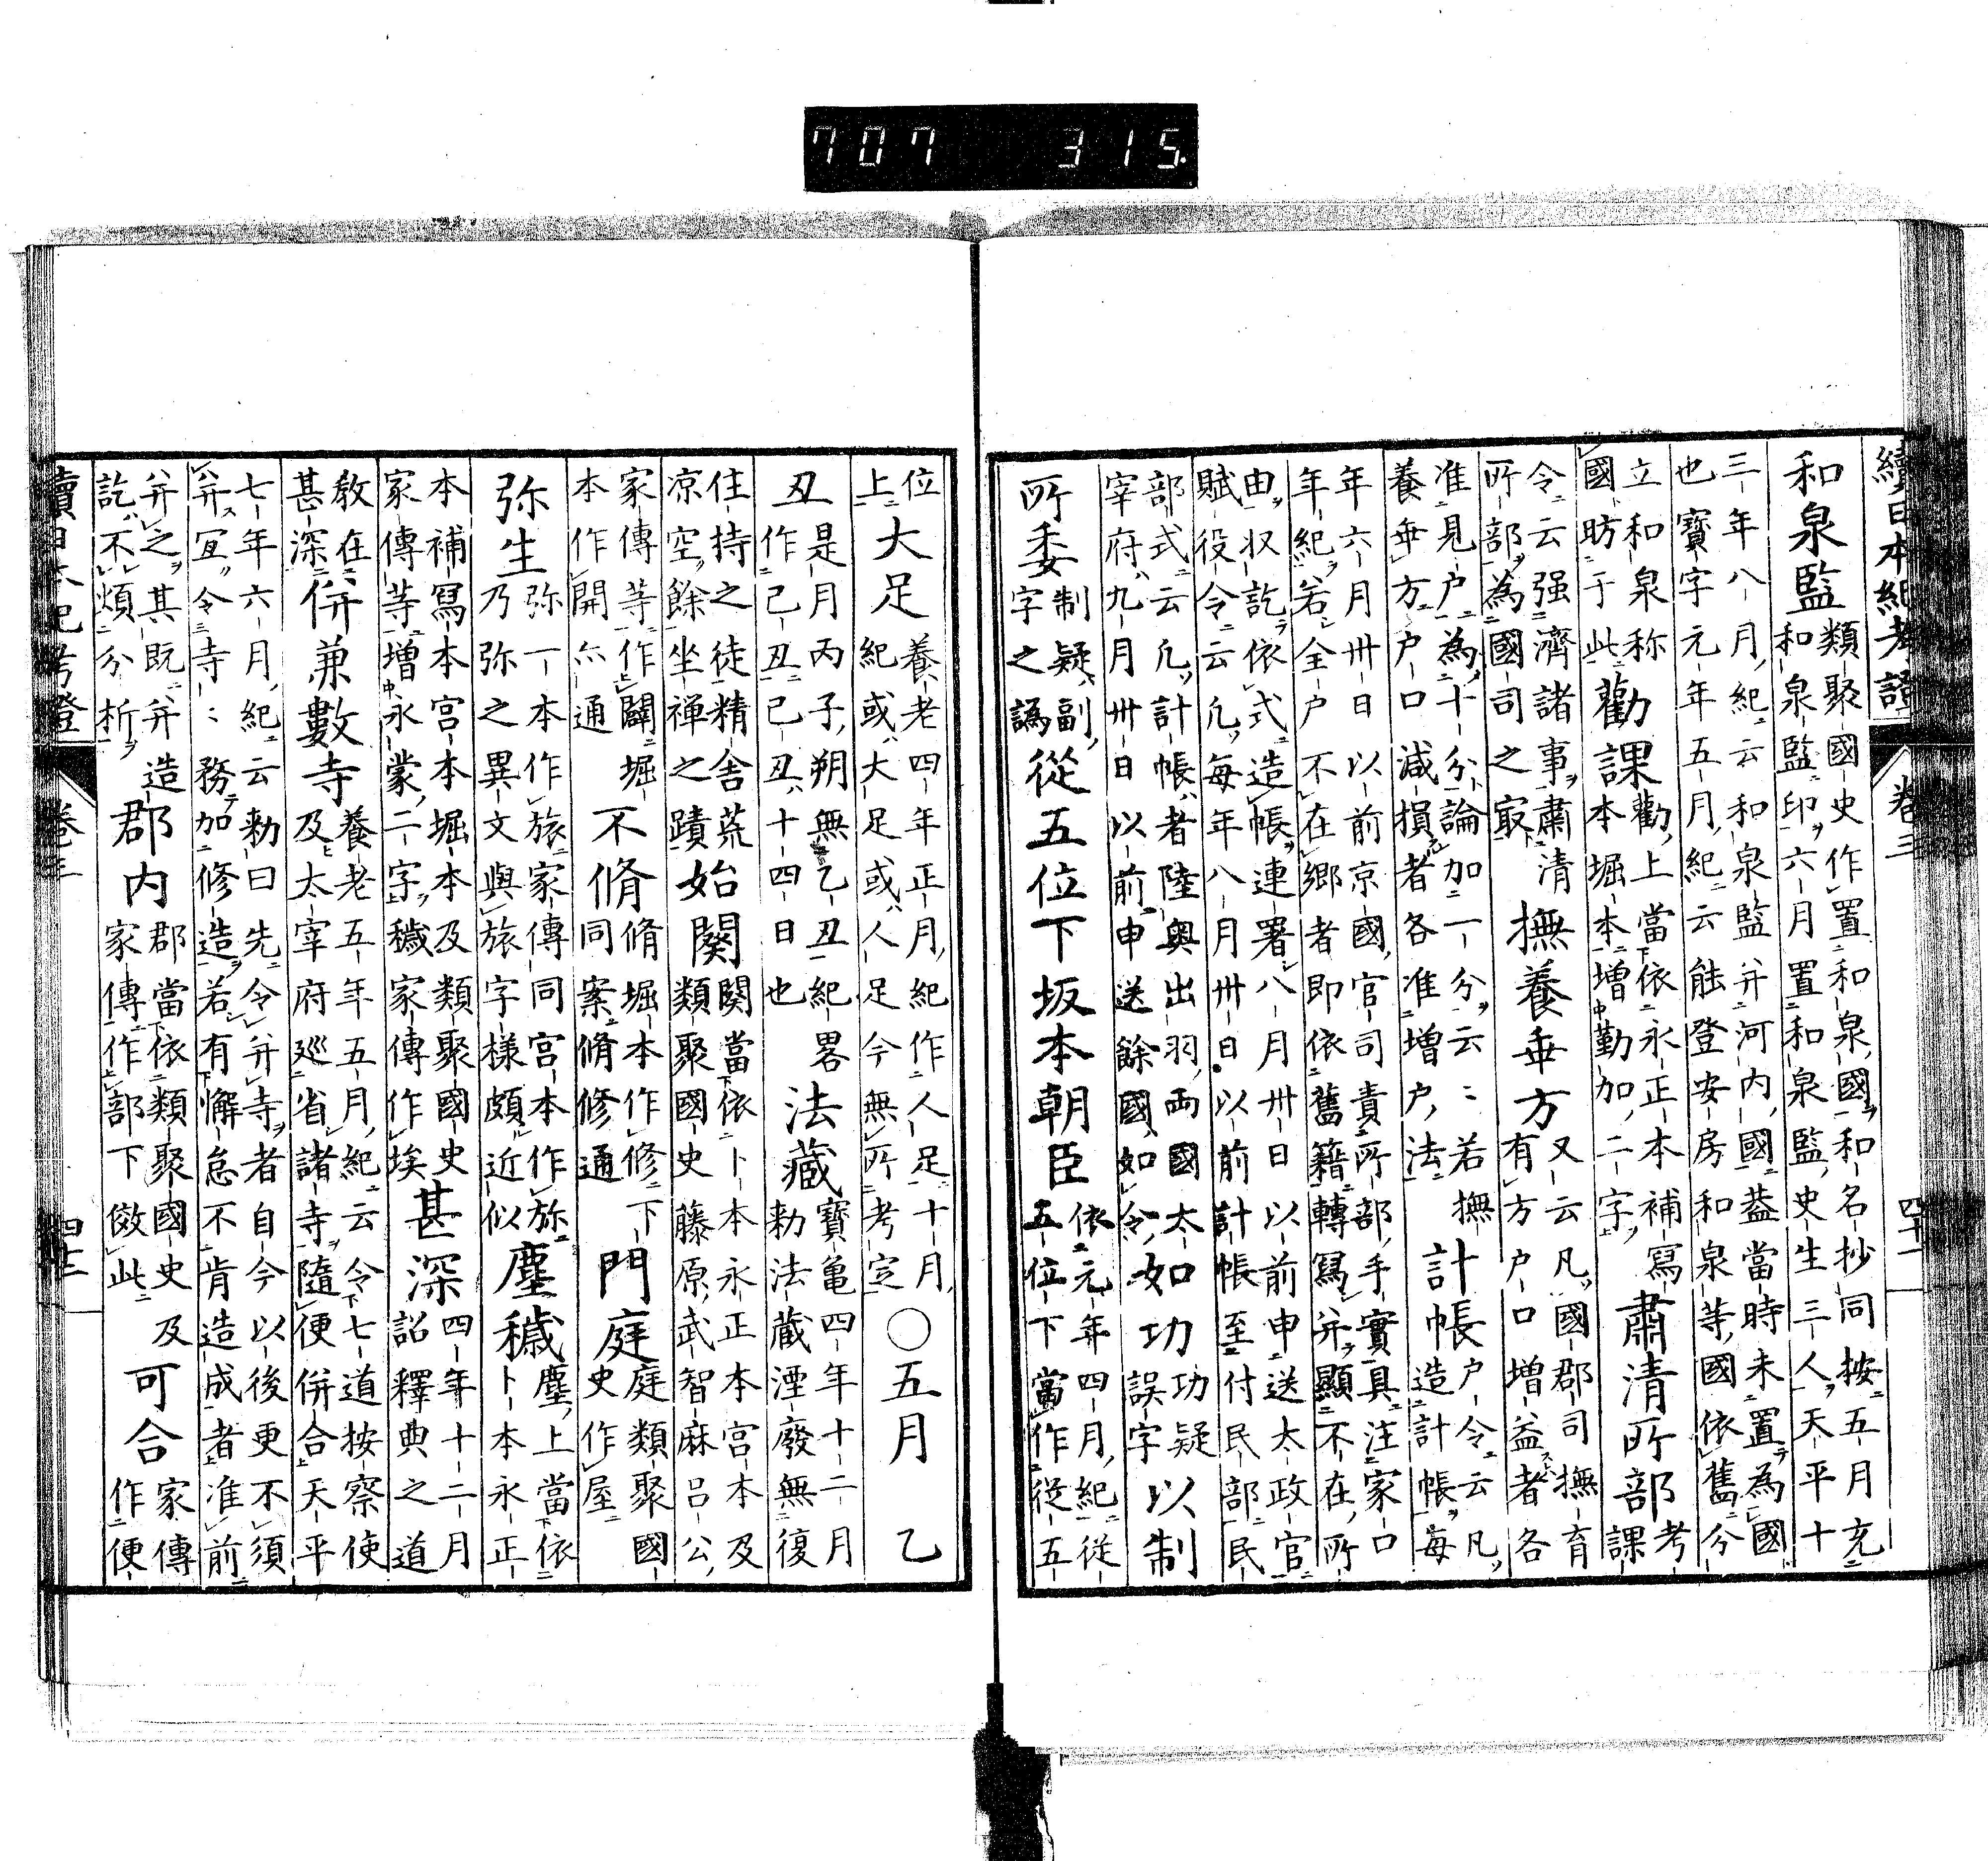 707 315
續日本紀考證 卷三 四十一
和泉監 類聚國史作置和泉國和名抄同按五月充
和泉監印六月置和泉監史生三人天平十
三年八月紀云和泉監幷河内國葢當時未置為國
也寶字元年五月紀云能登安房和泉等國依舊分
立和泉称
國昉于此 勸課 勸上當依永正本補寫
本堀本增勤加二字 肅清所部 考
課
令云强濟諸事肅清
所部為國司之㝡 撫養乖方 又云凡國郡司撫育
有方戶口增益者各
准見戶為十分論加一分云〻若撫
養乖方戶口減損者各准增戶法 計帳 戶令云凡
造計帳每
年六月卅日以前京國官司責所部手實具注家口
年紀若全戶不在鄉者即依舊籍轉寫幷顯不在所
由収訖依式造帳連署八月卅日以前申送太政官
賦役令云凡每年八月卅日以前計帳至付民部民
部式云凡計帳者陸奧出羽兩國太
宰府九月卅日以前申送餘國如令 如功 功疑
誤字 以制
所委 制疑副
字之譌 從五位下坂本朝臣 依元年四月紀從
五位下當作從五
位
上 大足 養老四年正月紀作人足十月
紀或大足或人足今無所考定 ○五月 乙
丑 是月丙子朔無乙丑紀畧
作己丑己丑十四日也 法藏 寶亀四年十二月
勅法藏湮廢無復
住持之徒精舍荒
凉空餘坐禅之蹟 始闋 闋當依卜本永正本宮本及
類聚國史藤原武智麻呂公
家傳等作闢堀
本作開亦通 不脩 脩堀本作修下
同案脩修通 門庭 庭類聚國
史作屋
弥生 弥一本作旅家傳同宮本作旀
乃弥之異文與旅字樣頗近似 塵穢 塵上當依
卜本永正
本補寫本宮本堀本及類聚國史
家傳等增永蒙二字穢家傳作埃 甚深 四年十二月
詔釋典之道
敎在
甚深 併兼數寺 養老五年五月紀云令七道按察使
及太宰府巡省諸寺隨便併合天平
七年六月紀云勅曰先令幷寺者自今以後更不須
幷宜令寺〻務加修造若有懈怠不肯造成者准前
幷之其既幷造
訖不煩分析 郡内 郡當依類聚國史及
家傳作部下倣此 可合 家傳
作便
續日本紀考證 卷三 四十二